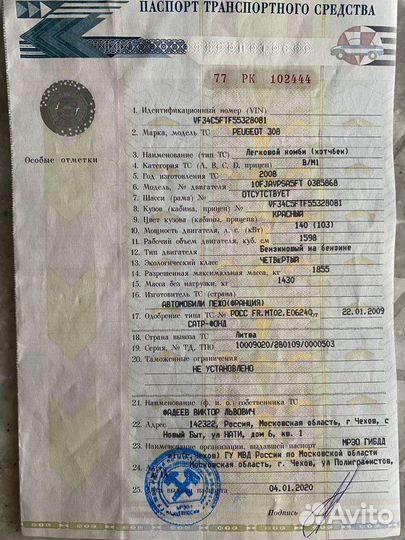 ПАСПОРТ ТРАНСПОРТНОГО СРЕДСТВА
77 РК 102444
Особые отметки
1. Идентификационный номер (VIN)
VF34C5FTF55328081
2. Марка, модель ТС PEUGEOT 308
3. Наименование (тип ТС) Легковой комби (хэтчбек)
4. Категория ТС (А, В, С, D, прицеп) B/M1
5. Год изготовления ТС 2008
6. Модель, № двигателя 10FJAVPSA5FT 0385868
7. Шасси (рама) № ОТСУТСТВУЕТ
8. Кузов (кабина, прицеп) № VF34C5FTF55328081
9. Цвет кузова (кабины, прицепа) КРАСНЫЙ
10. Мощность двигателя, л. с. (кВт) 140 (103)
11. Рабочий объем двигателя, куб. см 1598
12. Тип двигателя Бензиновый на бензине
13. Экологический класс ЧЕТВЕРТЫЙ
14. Разрешенная максимальная масса, кг 1855
15. Масса без нагрузки, кг 1430
16. Изготовитель ТС (страна)
АВТОМОБИЛИ ПЕЖО(ФРАНЦИЯ)
17. Одобрение типа ТС № РОСС FR.MT02.E06240 от 22.01.2009
САТР-ФОНД
18. Страна вывоза ТС Литва
19. Серия, № ТД, ТПО 10009020/280109/0000503
20. Таможенные ограничения
НЕ УСТАНОВЛЕНО
21. Наименование (ф. и. о.) собственника ТС
ФАДЕЕВ ВИКТОР ЛЬВОВИЧ
22. Адрес 142322, Россия, Московская область, г Чехов, с
Новый Быт, ул НАТИ, дом 6, кв. 1
23. Наименование организации, выдавшей паспорт МРЭО ГИБДД
Чехов) ГУ МВД России по Московской области
24. Адрес Московская область, г. Чехов, ул Полиграфистов,
25. Дата выдачи паспорта 04.01.2020
Подпись
Avito